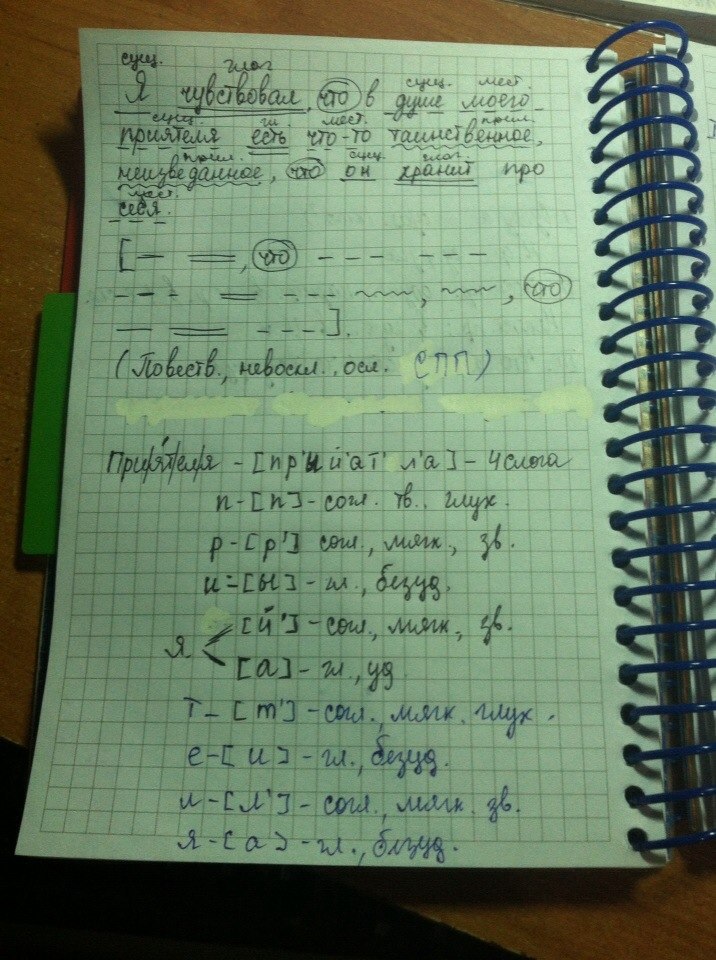 сущ. глаг
Я чувствовал что в душе моего
сущ. мест.
приятеля есть что-то таинственное,
сущ. гл. мест. прил.
неизведанное, что он хранит про
прил. сущ. глаг.
себя.
мест.
[— ═, что - - - - - -
- - - ═ - - - ~~~, ~~~, что
— ═ - - -].
(Повеств., невоскл., осл. СПП)
При/я́/те/ля - [пр'ый'ат' л'а] - 4 слога
п - [п] - согл. тв. глух.
р - [р'] согл., мягк., зв.
и = [ы] - гл., безуд.
я < [й'] - согл., мягк., зв.
[а] - гл., уд
т - [т'] - согл., мягк. глух.
е - [и] - гл., безуд.
л - [л'] - согл., мягк. зв.
я - [а] - гл., безуд.